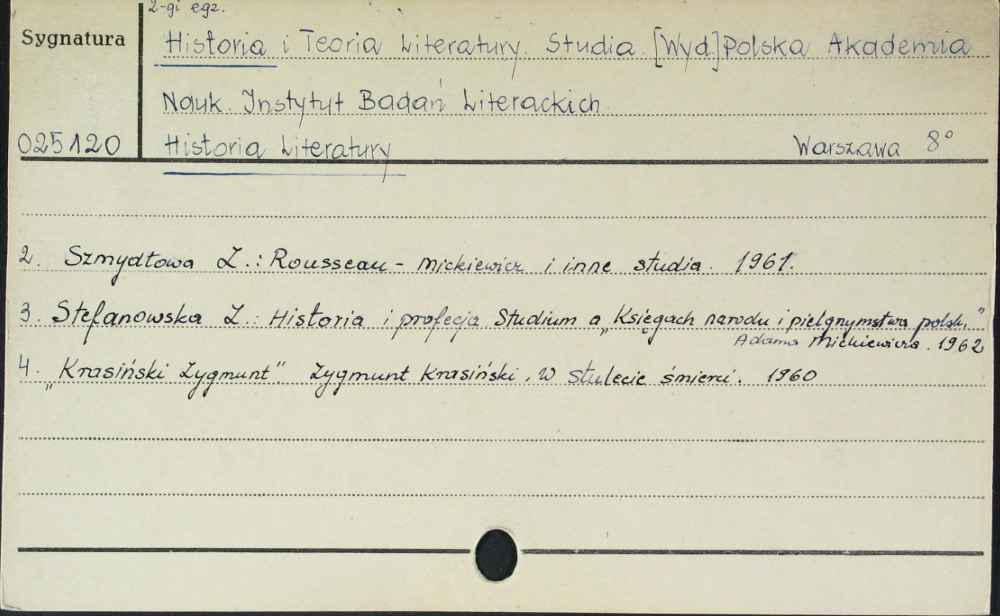 2-gi egz.
Sygnatura
Historia i Teoria Literatury. Studia. [Wyd] Polska Akademia
Nauk. Instytut Badań Literackich.
025120 Historia Literatury Warszawa 8°
2. Szmydtowa Z.: Rousseau - Mickiewicz i inne studia. 1961.
3. Stefanowska Z.: Historia i profecja Studium o „Księgach narodu i pielgrzymstwa polsk."
Adama Mickiewicza. 1962
4. „Krasiński Zygmunt". Zygmunt Krasiński. W stulecie śmierci. 1960